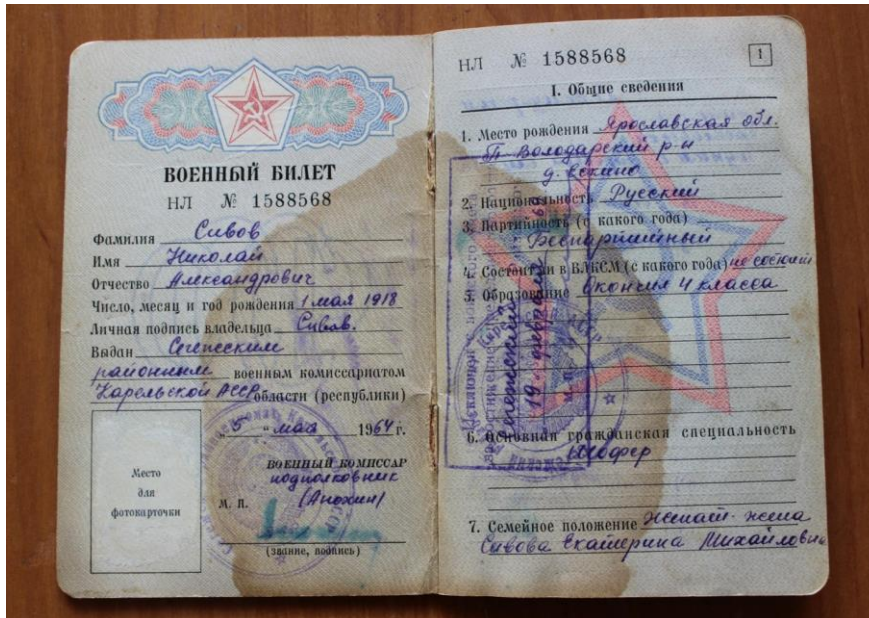 ВОЕННЫЙ БИЛЕТ
НЛ № 1588568
Фамилия Сивов
Имя Николай
Отчество Александрович
Число, месяц и год рождения 1 мая 1918
Личная подпись владельца Сивов.
Выдан Сегежским
районным военным комиссариатом
Карельской АССР области (республики)
"5" мая 1964 г.
Место
для
фотокарточки
ВОЕННЫЙ КОМИССАР
подполковник
М. П. (Анохин)
(звание, подпись)
НЛ № 1588568
1
I. Общие сведения
1. Место рождения Ярославская обл.
Володарский р-н
д.
2. Национальность Русский
3. Партийность (с какого года)
Беспартийный
4. Состоит ли в ВЛКСМ (с какого года) не состоит
5. Образование Окончил 4 класса
6. Основная гражданская специальность
Шофер
7. Семейное положение женат-жена
Сивова Екатерина Михайловна